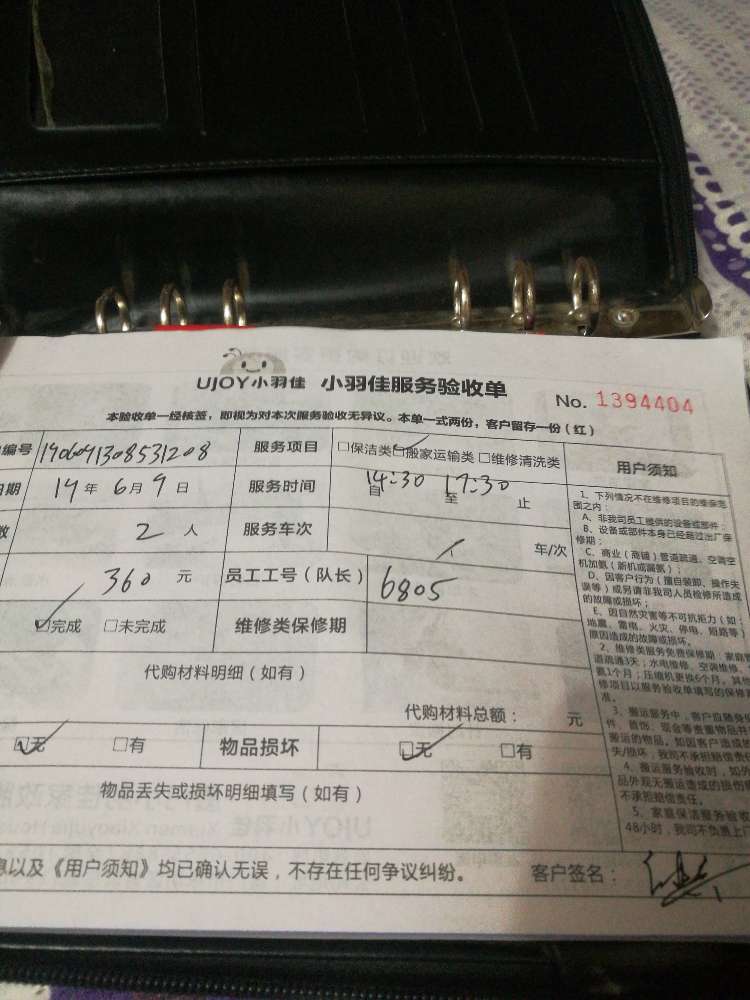 UJOY小羽佳 小羽佳服务验收单 No. 1394404
本验收单一经核签，即视为对本次服务验收无异议。本单一式两份，客户留存一份（红）
编号 1906091308531208 服务项目 □保洁类 ☑搬家运输类 □维修清洗类
日期 19年6月9日 服务时间 自14:30至17:30止
数 2人 服务车次 1 车/次
360元 员工工号（队长） 6805
☑完成 □未完成 维修类保修期
代购材料明细（如有）
代购材料总额： 元
☑无 □有 物品损坏 ☑无 □有
物品丢失或损坏明细填写（如有）
息以及《用户须知》均已确认无误，不存在任何争议纠纷。 客户签名：
用户须知
1、下列情况不在维修项目的维保范
围之内：
A、非我司员工提供的设备或部件；
B、设备或部件本身已经超过出厂保
修期；
C、商业（商铺）管道疏通、空调空
机加氨（新机或漏氨）；
D、因客户行为（擅自装卸、操作失
误等）或另请非我司人员检修所造成
的故障或损坏；
E、因自然灾害等不可抗拒力（如：
地震、雷电、火灾、停电、短路等）
原因造成的故障或损坏。
2、维修类服务免费保修期：家庭管
道疏通3天；水电维修、空调维修、
氨1个月；压缩机更换6个月。其他
修项目以服务验收单填写的保修期
准。
3、搬运服务中，客户应随身保
件、首饰、现金等贵重物品并
搬运的物品。如因客户造成被
失/损坏，我司不承担赔偿责任
4、搬运服务验收时，如外
品外观无搬运造成的损伤
不承担赔偿责任。
5、家庭保洁服务验收
48小时，我司不负责上